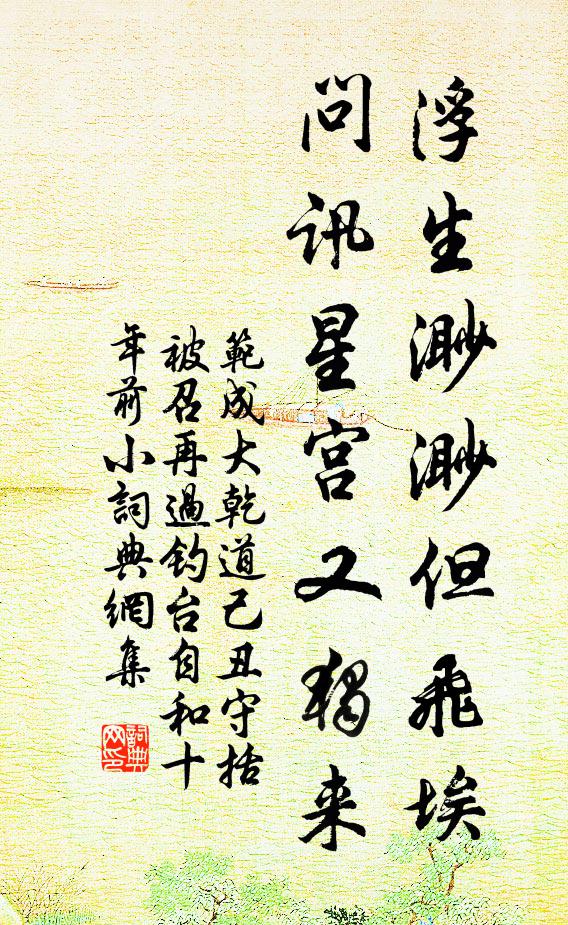 浮生渺渺但飛埃
問訊星宮又獨来
範成大乾道己丑守括
被召再過釣台自和十
年前小詞典網集
詞典网印